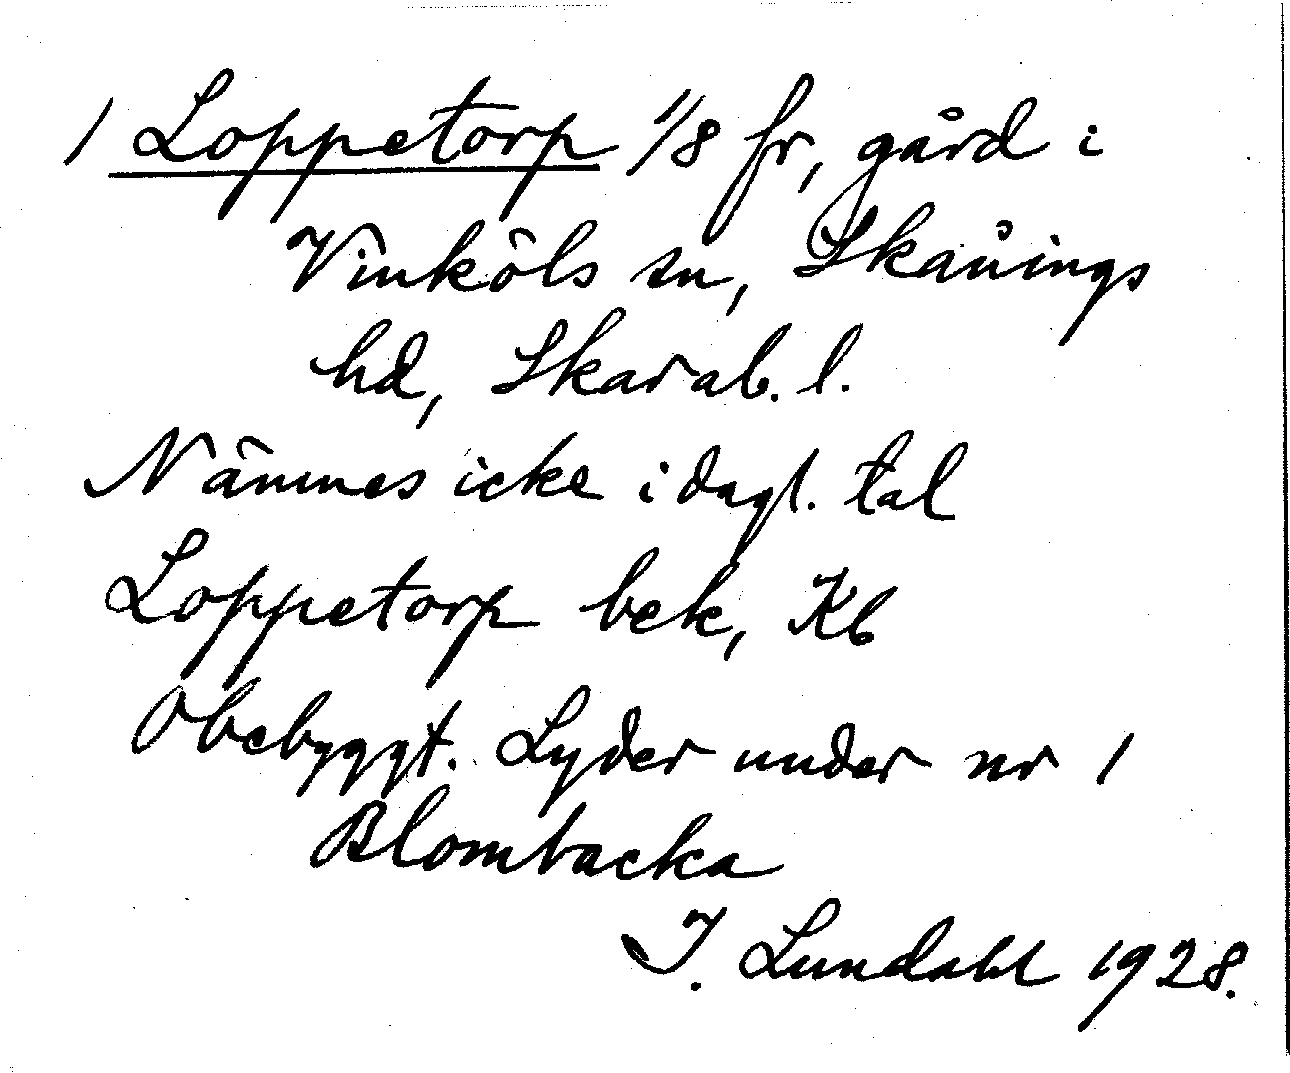 1 Loppetorp 1/8 fr, gård i
Vinköls sn, Skånings
hd, Skarab. l.
Nämnes icke i dagl. tal
Loppetorp bek, Kb
Obebyggt. Lyder under nr 1
Blombacka
I. Lundahl 1928.